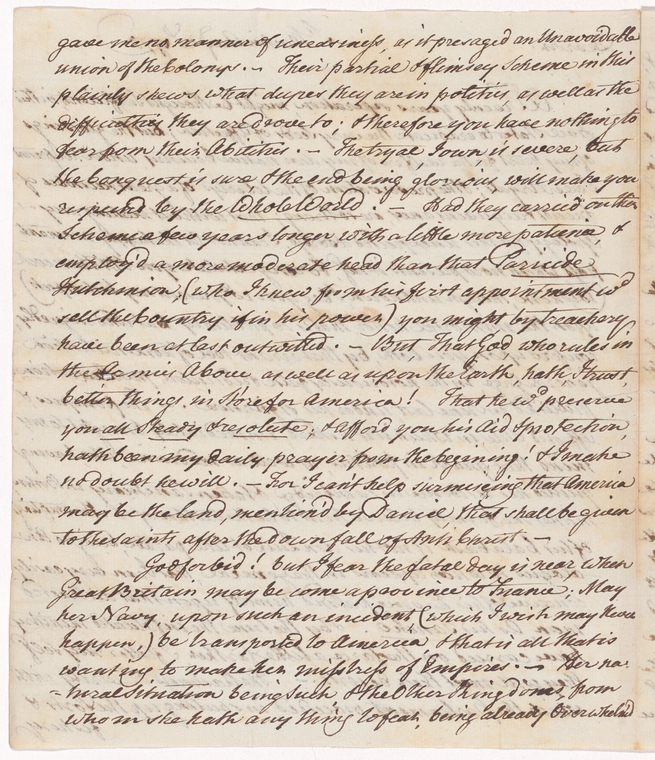 gave me no manner of uneasiness, as it presaged an Unavoidable
union of the Colonys. – Their partial & flimsey Scheme in this
plainly shews what dupes they are in politics, as well as the
difficulties they are drove to; & therefore you have nothing to
fear from their Abilities. – The tryal I own, is severe, but
the Conquest is sure, & the end being glorious will make you
respected by the Whole World. – Had they carried on their
Scheme a few years longer with a little more patience, &
employ'd a more moderate head than that Paricide
Hutchinson, (who I knew from his first appointment wd
sell the Country if in his power,) you might by treachery
have been at last outwitted. – But That God, who rules in
the Armies Above, as well as upon the Earth, hath, I trust,
better things in Store for America! That he wd preserve
you all Steady & resolute, & afford you his Aid & protection,
hath been my daily prayer from the begining! & I make
no doubt he will. – For I can't help surmiseing that America
may be the land, mention'd by Daniel that shall be given
to the saints after the down fall of Anti Christ. –
God forbid! but I fear the fatal day is near, when
Great Britain may become a province to France; May
her Navy, upon such an incident (which I wish may never
happen,) be transported to America, & that is all that is
wanting to make her mistress of Empires. – Her na-
=tural Situation being such, & the Other thing done, from
whom she hath any thing to fear, being already Overwhelm'd